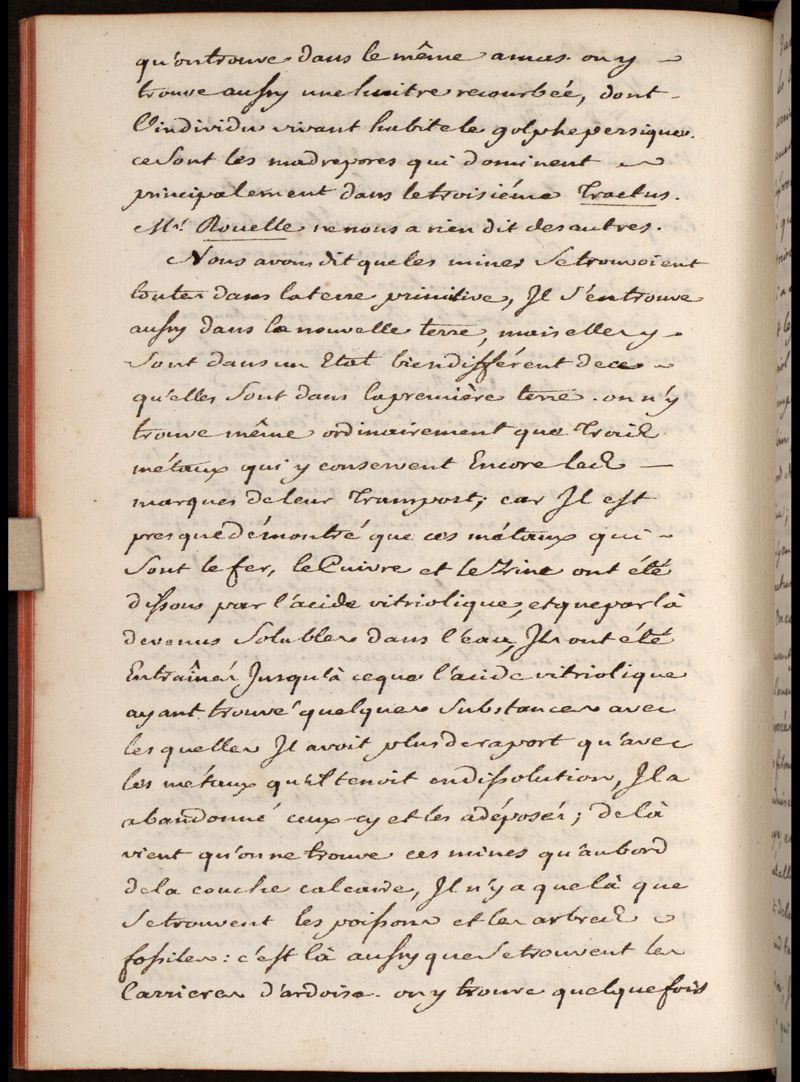 qu'on trouve dans le même amas. on y
trouve aussy une huitre recourbée, dont
l'individu vivant habite le golphe persique.
ce sont les madrepores qui dominent
principalement dans le troisiéme Tractus.
Mr. Rouelle ne nous a rien dit des autres.
Nous avons dit que les mines se trouvoient
toutes dans la terre primitive, Il s'en trouve
aussy dans la nouvelle terre, mais elles y
sont dans un Etat bien différent de ce
qu'elles sont dans la première terre. on n'y
trouve même ordinairement que Trois
métaux qui y conservent Encore les
marques de leur Transport; car Il est
presque démontré que ces métaux qui
sont le fer, le Cuivre et le Zinc ont été
dissous par l'acide vitriolique, et que par là
devenus solubles dans l'eau, Ils ont été
Entraînés Jusqu'à ce que l'acide vitriolique
ayant trouvé quelques substances avec
les quelles Il avoit plus de raport qu'avec
les métaux qu'Il tenoit en dissolution, Il a
abandonné ceux-cy et les a déposés; de là
vient qu'on ne trouve ces mines qu'au bord
de la couche calcaire, Il n'y a que là que
se trouvent les poissons et les arbres
fossiles: c'est là aussy que se trouvent les
Carrieres d'ardoise. on y trouve quelque fois